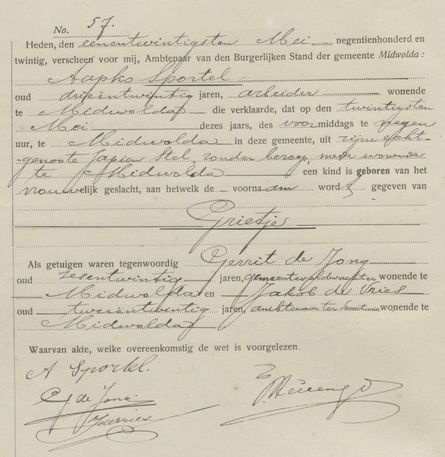 No. 57.
Heden, den eenentwintigsten Mei negentienhonderd en
twintig, verscheen voor mij, Ambtenaar van den Burgerlijken Stand der gemeente Midwolda:
Aapko Sportel
oud drieëntwintig jaren, arbeider wonende
te Midwolda die verklaarde, dat op den twintigsten
Mei dezes jaars, des voormiddags te negen
uur, te Midwolda in deze gemeente, uit zijne echt-
genoote Japien Stel, zonder beroep, mede wonende
te Midwolda een kind is geboren van het
vrouwelijk geslacht, aan hetwelk de voornaam wordt gegeven van
Grietje
Als getuigen waren tegenwoordig Gerrit de Jong
oud zesentwintig jaren, gemeenteveldwachter wonende te
Midwolda en Jakob de Vries
oud tweeëntwintig jaren, ambtenaar ter secretarie wonende te
Midwolda
Waarvan akte, welke overeenkomstig de wet is voorgelezen.
A Sportel.
G de Jong
JdeVries